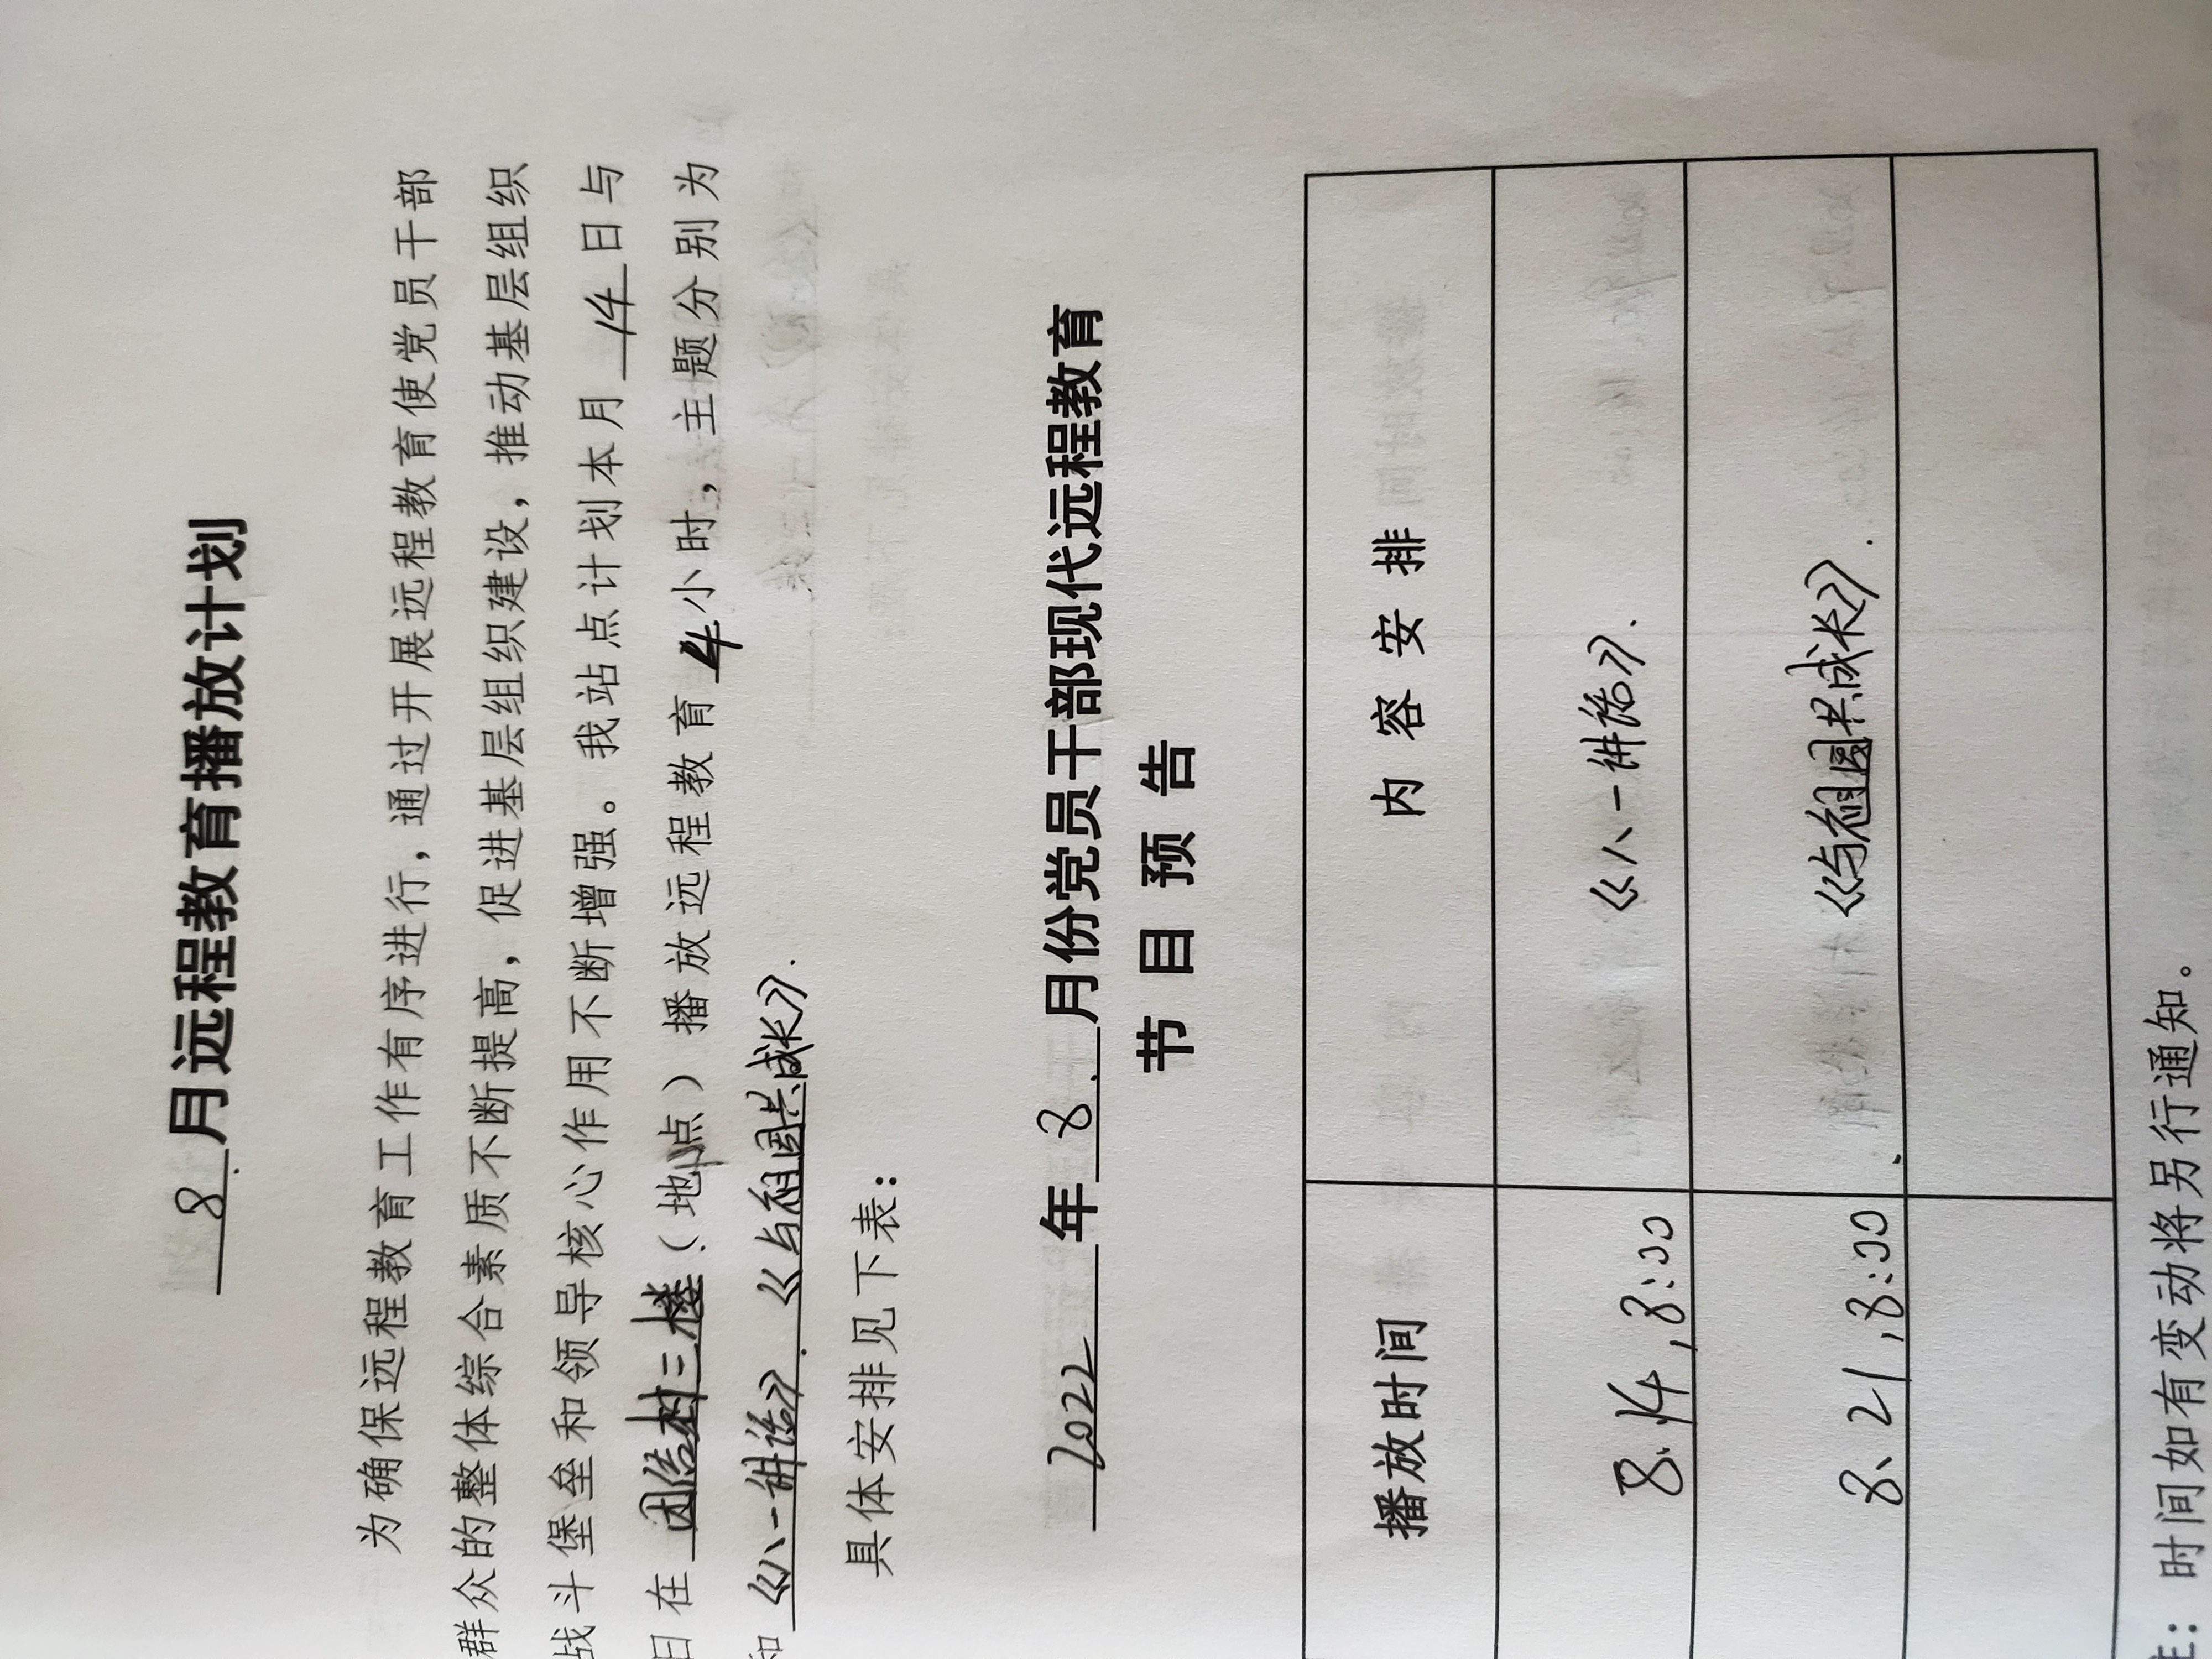 8.月远程教育播放计划
为确保远程教育工作有序进行，通过开展远程教育使党员干部
群众的整体综合素质不断提高，促进基层组织建设，推动基层组织
战斗堡垒和领导核心作用不断增强。我站点计划本月 14 日与
日在 因信村三楼（地点）播放远程教育 4 小时，主题分别为
和《八一讲话》.《与祖国共成长》.
具体安排见下表：
2022 年 8. 月份党员干部现代远程教育
节目预告
播放时间 内容安排
8.14，8:00 《八一讲话》.
8、21，8:00 《与祖国共成长》.
注：时间如有变动将另行通知。